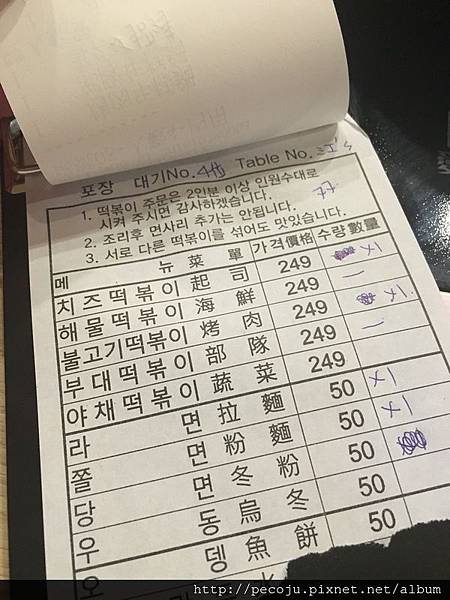 포장 대기No. Table No.
1. 떡볶이 주문은 2인분 이상 인원수대로
시켜 주시면 감사하겠습니다.
2. 조리후 면사리 추가는 안됩니다.
3. 서로 다른 떡볶이를 섞어도 맛있습니다.
메 뉴 菜 單 가격價格 수량數量
치즈떡볶이 起司 249
해물떡볶이 海鮮 249 一
불고기떡볶이 烤肉 249
부대떡볶이 部隊 249 一
야채떡볶이 蔬菜 249
라 면 拉麵 50
쫄 면 粉麵 50
당 면 冬粉 50
우 동 烏冬 50
오 뎅 魚餅 50
http://pecoju.pixnet.net/album